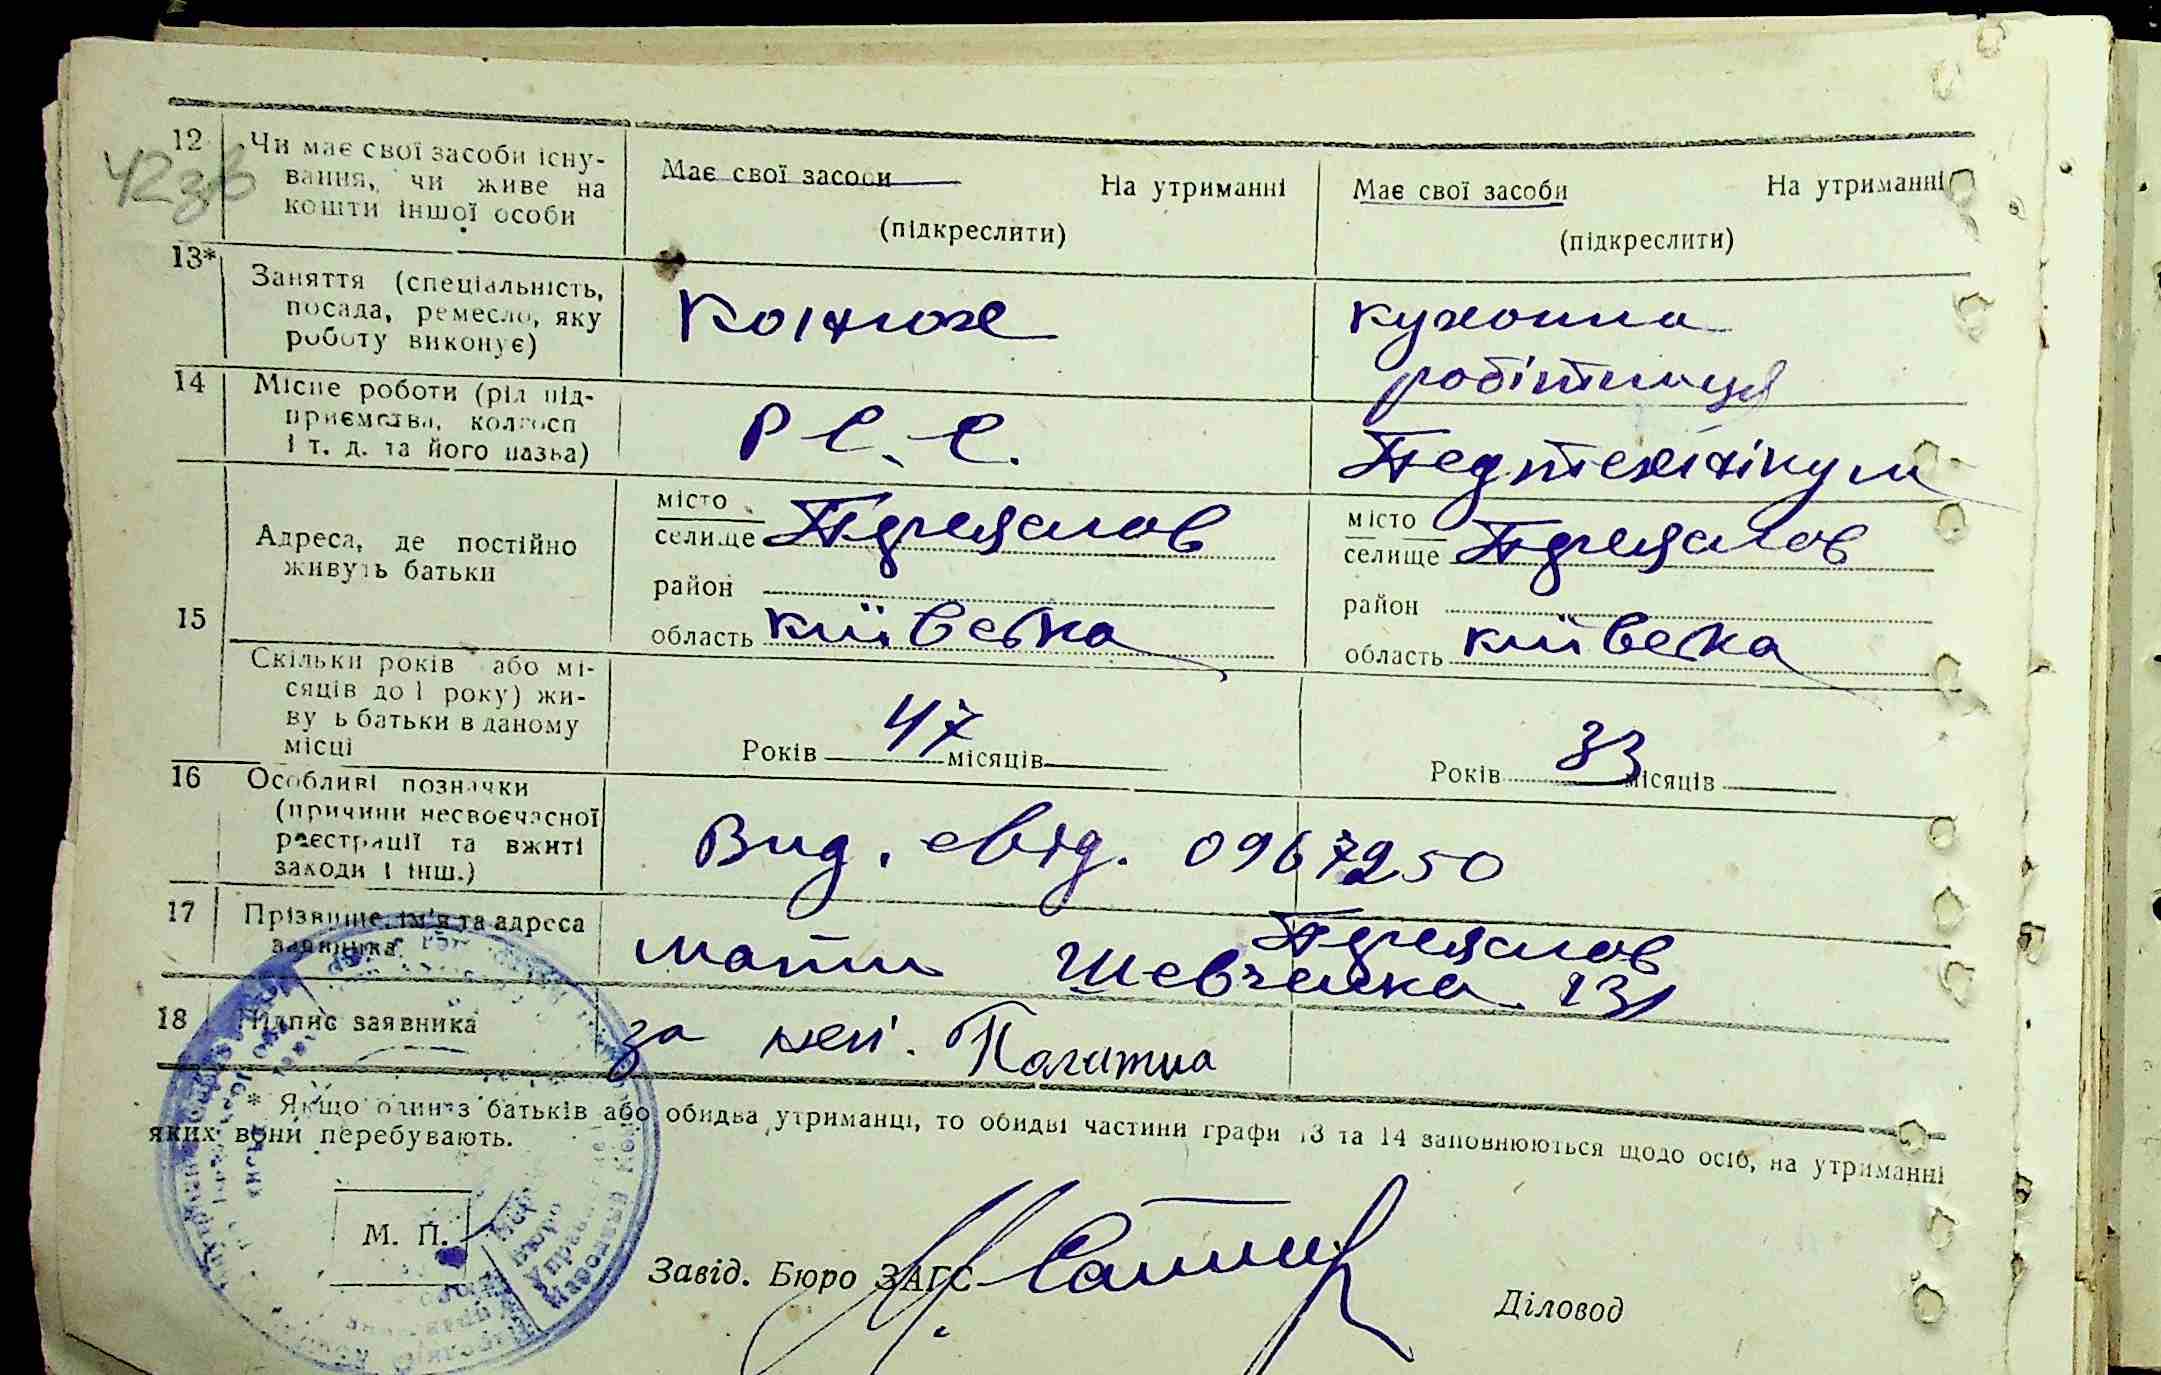 42зв
12 Чи має свої засоби існу-
вання, чи живе на
кошти іншої особи
Має свої засоби На утриманні
(підкреслити)
Має свої засоби На утриманні
(підкреслити)
13* Заняття (спеціальність,
посада, ремесло, яку
роботу виконує)
Конюх
кухонна
робітниця
14 Місце роботи (рід під-
приємства, колгосп
і т. д. та його назва)
Р С. С.
Педтехнікум
15 Адреса, де постійно
живуть батьки
місто
селище
район
область київська
місто
селище
район
область київська
Скільки років або мі-
сяців до 1 року) жи-
ву ь батьки в даному
місці
Років 47 місяців
Років 33 місяців
16 Особливі позначки
(причини несвоєчасної
реєстрації та вжиті
заходи і інш.)
Вид. свід. 0967250
17 Прізвище, ім'я та адреса
заявника
мати Шевченка 131
18 Підпис заявника
за неї.
* Якщо один з батьків або обидва утриманці, то обидві частини графи 13 та 14 заповнюються щодо осіб, на утриманні
яких вони перебувають.
М. П.
Завід. Бюро ЗАГС
Діловод